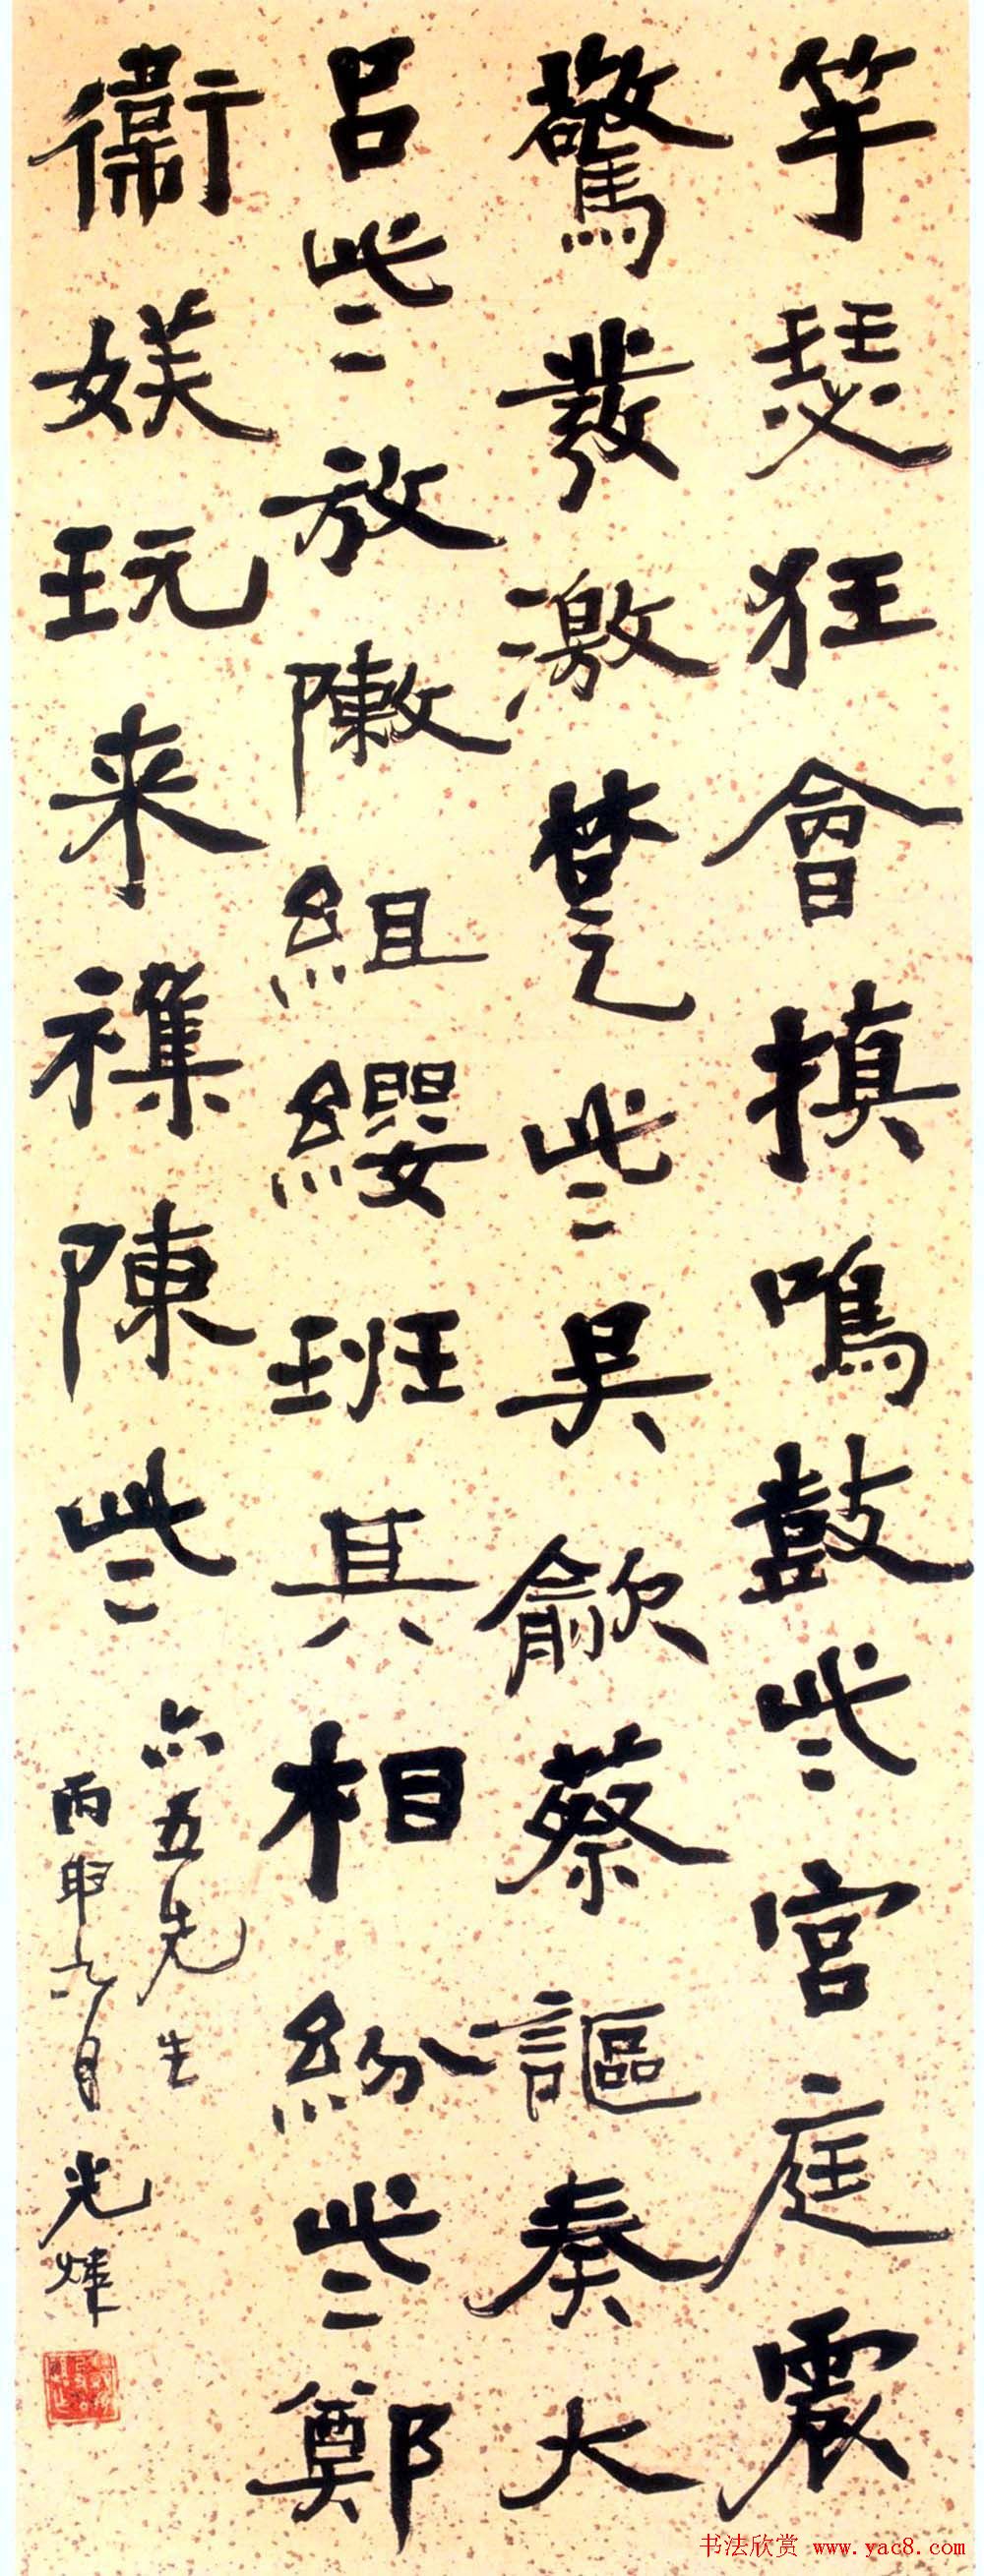 竽瑟狂會搷鳴鼓些宮庭震
驚發激楚些吳歈蔡謳奏大
呂些放敶組纓班其相紛些鄭
衛媄玩来襍陳些
六五先生
丙申六月 光煒
书法欣赏 www.yac8.com